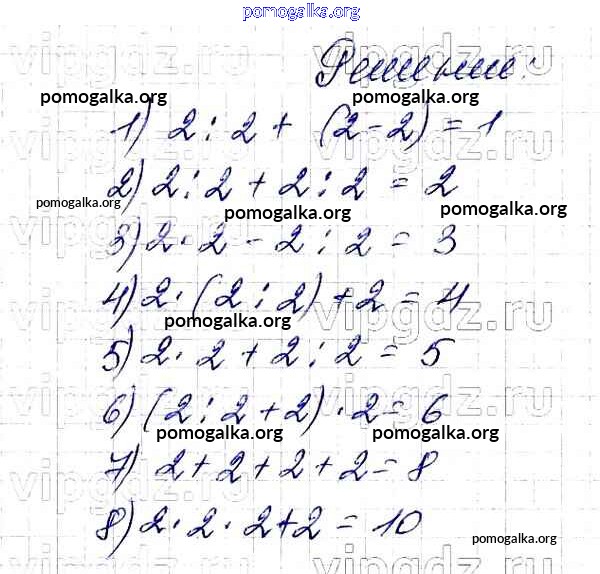 pomogalka.org
Решение:
pomogalka.org pomogalka.org
1) 2 : 2 + (2 - 2) = 1
2) 2 : 2 + 2 : 2 = 2
pomogalka.org pomogalka.org pomogalka.org
3) 2 · 2 - 2 : 2 = 3
4) 2 · (2 : 2) + 2 = 4
pomogalka.org
5) 2 · 2 + 2 : 2 = 5
6) (2 : 2 + 2) · 2 = 6
pomogalka.org pomogalka.org
7) 2 + 2 + 2 + 2 = 8
8) 2 · 2 · 2 + 2 = 10
pomogalka.org
vipgdz.ru
vipgdz.ru
vipgdz.ru
vipgdz.ru
vipgdz.ru
vipgdz.ru